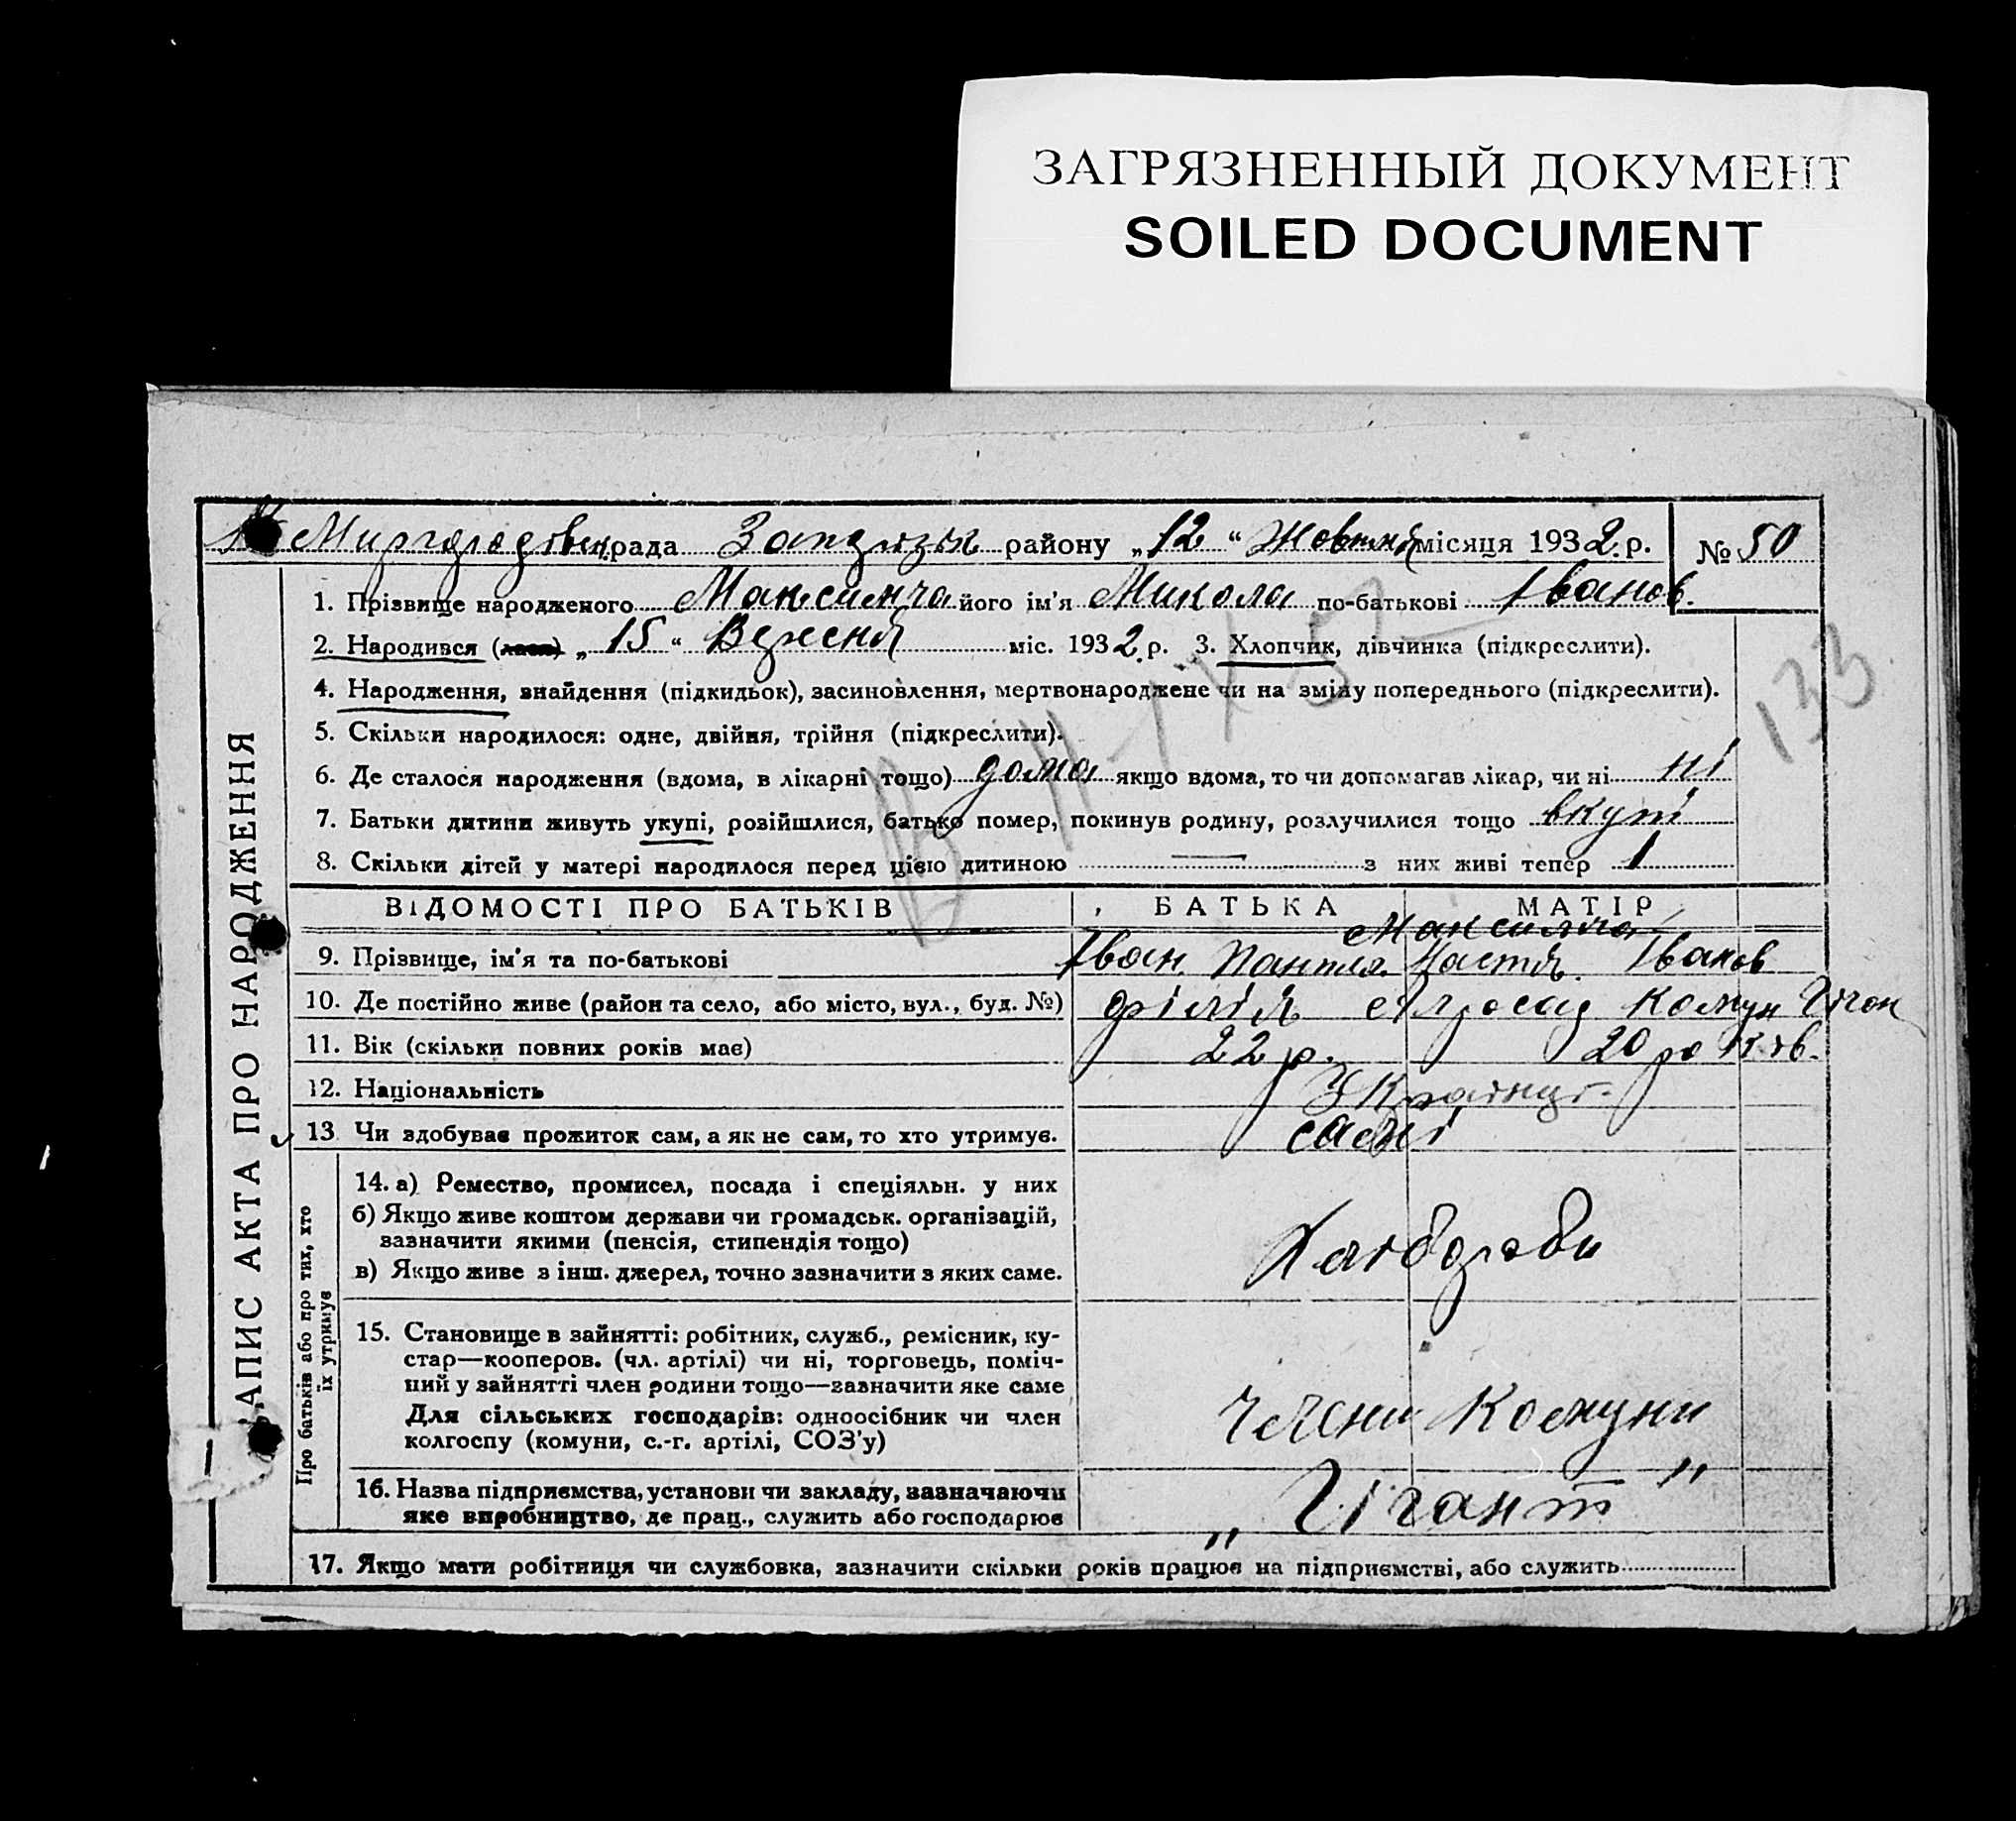 ЗАГРЯЗНЕННЫЙ ДОКУМЕНТ
SOILED DOCUMENT
Миргородівськ рада району „12“ Жовтня місяця 1932 р. № 50
1. Прізвище народженого Максимча його ім'я Микола по-батькові Іванов.
2. Народився (лася) „15“ Вересня міс. 1932 р. 3. Хлопчик, дівчинка (підкреслити).
4. Народження, знайдення (підкидьок), засиновлення, мертвонароджене чи на зміну попереднього (підкреслити).
5. Скільки народилося: одне, двійня, трійня (підкреслити).
6. Де сталося народження (вдома, в лікарні тощо) дома якщо вдома, то чи допомагав лікар, чи ні ні
7. Батьки дитини живуть укупі, розійшлися, батько помер, покинув родину, розлучилися тощо вкупі
8. Скільки дітей у матері народилося перед цією дитиною — з них живі тепер 1
133
ЗАПИС АКТА ПРО НАРОДЖЕННЯ
ВІДОМОСТІ ПРО БАТЬКІВ БАТЬКА МАТІР
Максимча
9. Прізвище, ім'я та по-батькові Іван Пантел. Настя Іванов
10. Де постійно живе (район та село, або місто, вул., буд. №) філія Комун Гіган
11. Вік (скільки повних років має) 22 р. 20 років.
12. Національність Українці.
13. Чи здобуває прожиток сам, а як не сам, то хто утримує. самі
Про батьків або про тих, хто
їх утримує
14. а) Ремество, промисел, посада і спеціяльн. у них
б) Якщо живе коштом держави чи громадськ. організацій,
зазначити якими (пенсія, стипендія тощо)
в) Якщо живе з інш. джерел, точно зазначити з яких саме.
Хлібороби
15. Становище в зайнятті: робітник, служб., ремісник, ку-
стар—кооперов. (чл. артілі) чи ні, торговець, поміч-
ний у зайнятті член родини тощо—зазначити яке саме
Для сільських господарів: одноосібник чи член
колгоспу (комуни, с.-г. артілі, СОЗ'у)
члени комуни
16. Назва підприємства, установи чи закладу, зазначаючи
яке виробництво, де прац., служить або господарює
„Гігант"
17. Якщо мати робітниця чи службовка, зазначити скільки років працює на підприємстві, або служить